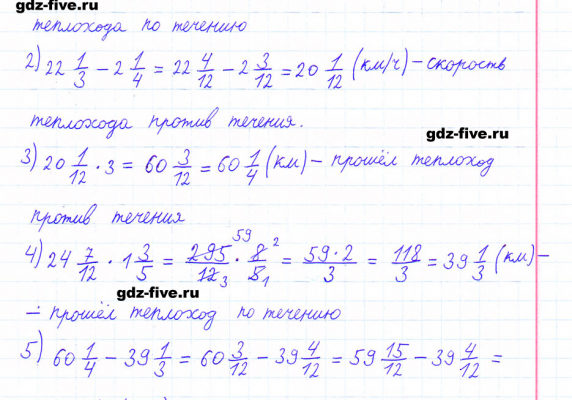 gdz-five.ru
теплохода по течению
2) 22 1/3 − 2 1/4 = 22 4/12 − 2 3/12 = 20 1/12 (км/ч) − скорость
теплохода против течения.
gdz-five.ru
3) 20 1/12 · 3 = 60 3/12 = 60 1/4 (км) − прошёл теплоход
против течения
4) 24 7/12 · 1 3/5 = 295 59/12 3 · 8 2/5 1 = 59·2/3 = 118/3 = 39 1/3 (км) −
gdz-five.ru
− прошёл теплоход по течению
5) 60 1/4 − 39 1/3 = 60 3/12 − 39 4/12 = 59 15/12 − 39 4/12 =